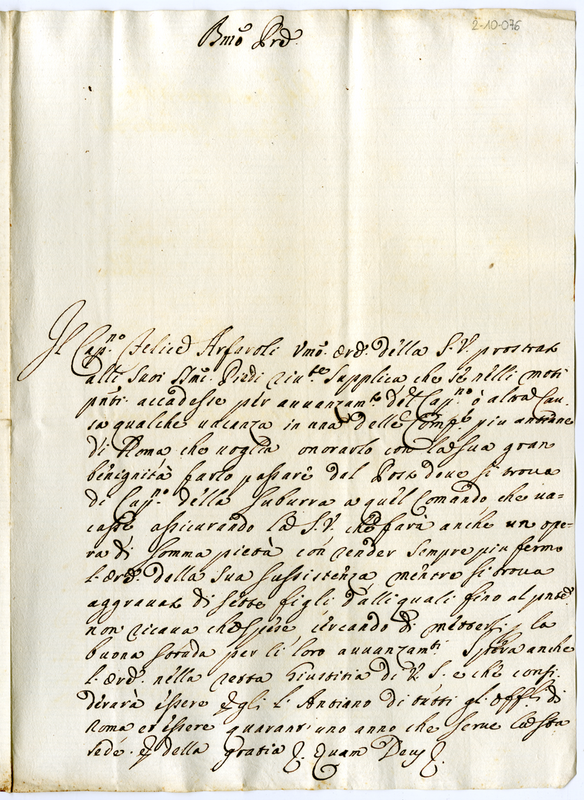 2-10-076
Bmo Prd.
Il Cap.no Felice Arfaroli Vmo. ord. della S.V. prostrato
alli Suoi Smi. Piedi riu.te Supplica che se nelli moti
pnti. accadesse per auuanzam.to del Cap.no ò altra Cau-
sa qualche uacanza in una delle Comp.e piu antiane
di Roma che uoglia onorarlo con la sua gran
benignità farlo passare dal Posto doue si troua
di Cap.no della Suburra a quel Comando che ua-
casse assicurando la S.V. che farà anche un ope-
ra di somma pietà con render sempre piu fermo
l. ord. della sua sussistenza mentre si troua
aggrauato di sette figli dalli quali fino al pnte.
non ricaua che spese cercando di metterli p la
buona strada per li loro auuanzam.ti Spera anche
l. ord. nella retta Giustitia di V. S. e che consi-
derarà essere egli l. Antiano di tutti gl. offli. di
Roma et essere quarant. uno anno che serue la Sta.
sede. E della gratia E. Quam Deus E.